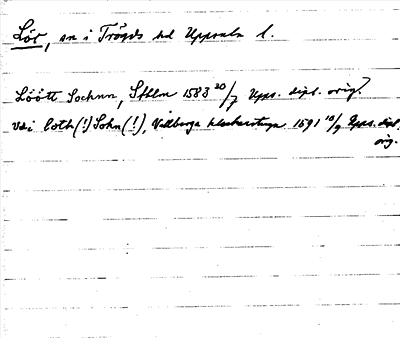 Löt, sn i Trögds hd Uppsala l.
Löött Sochnn, Sthlm 1583 20/7 Upps. dipl. orig.
Vdi loth(!) Sohn(!), Vallberga klockarstuga 1591 10/9 Upps. dipl.
orig.